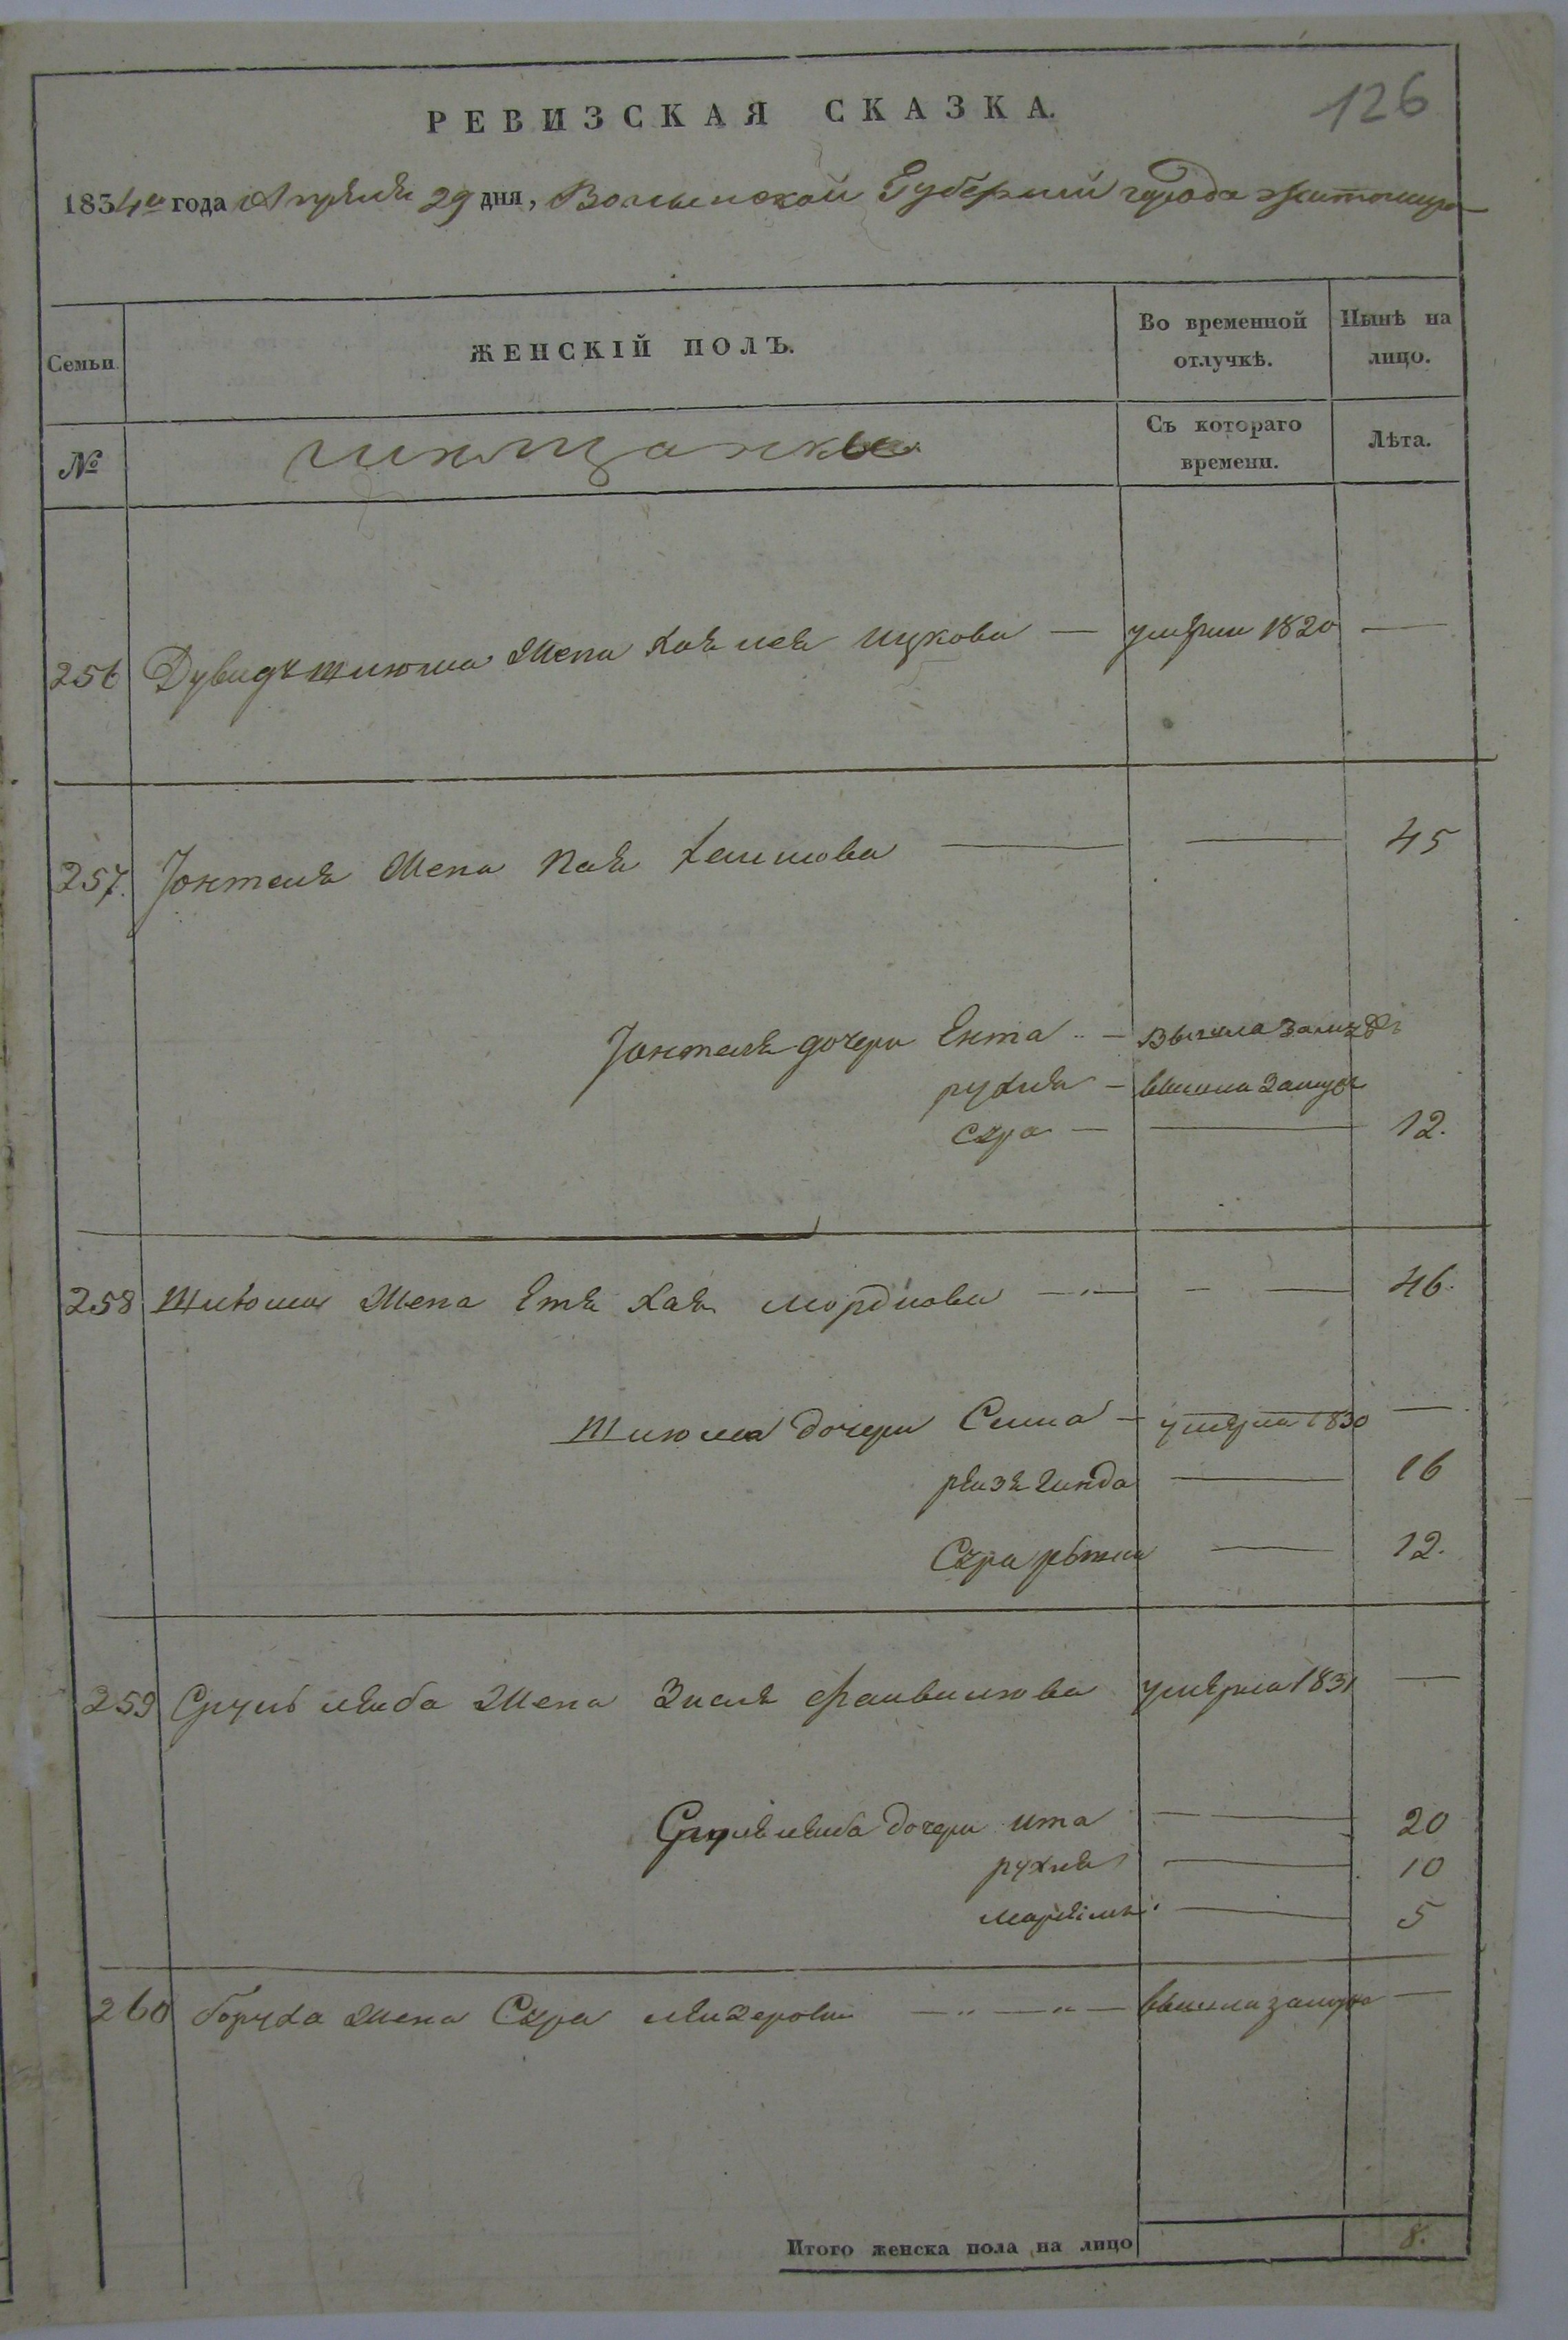 126
РЕВИЗСКАЯ СКАЗКА.
1834го года Апреля 29 дня, Волынской Губернии города Житомира
Семьи ЖЕНСКІЙ ПОЛЪ. Во временной отлучкѣ. Нынѣ на лицо.
№ мещанъ Съ котораго времени. Лѣта.
256 Дувидъ Шлюма Жена Хая Лея Ицкова — умерла 1820 —
257. Іонтеля Жена Пая Хаимова — — 45
Іонтеля дочери Ента — вышла замужъ
рухля — вышла замужъ
Сура — — 12.
258 Шлюма Жена Етя Хая Мордкова — — 46.
Шлюма дочери Сима — умерла 1830 —
рейзя Гинда — 16
Сура — 12.
259 Сруль лейба Жена Зисля Файвилюва умерла 1831 —
Сруля лейба дочери ита — 20
рухля — 10
марьямъ — 5
260 боруха Жена Сура лейзерова — вышла замужъ —
Итого женска пола на лицо 8.